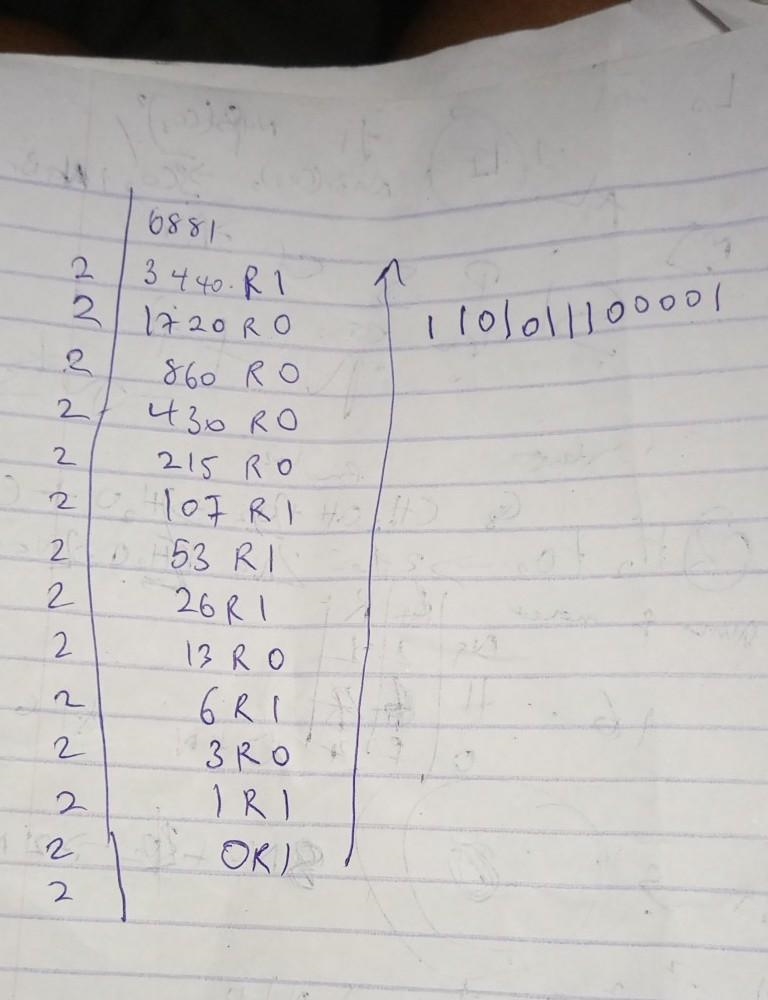 6881
2 3440. R 1
2 1720 R 0
2 860 R 0
2 430 R 0
2 215 R 0
2 107 R 1
2 53 R 1
2 26 R 1
2 13 R 0
2 6 R 1
2 3 R 0
2 1 R 1
2 0 R 1
2
1101011100001